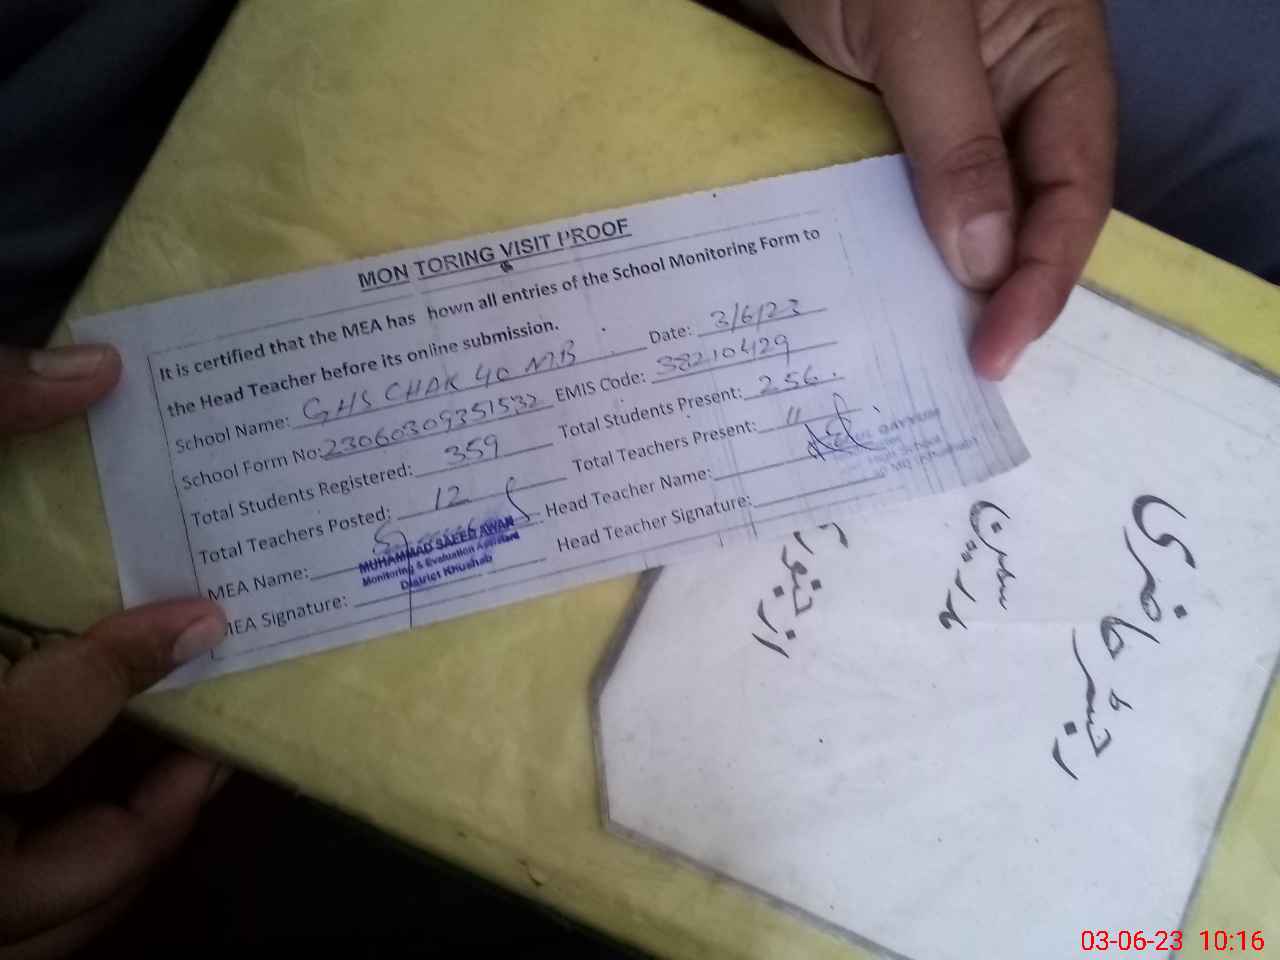 MON TORING VISIT PROOF
It is certified that the MEA has hown all entries of the School Monitoring Form to
the Head Teacher before its online submission.
School Name: GHS CHAK 40 MB Date: 3/6/23
School Form No: 23060309351532 EMIS Code: 38210429
Total Students Registered: 359 Total Students Present: 256.
Total Teachers Posted: 12 Total Teachers Present: 11
MEA Name: Head Teacher Name:
MUHAMMAD SAEED AWAN
Monitoring & Evaluation Assistant
District Khushab
MEA Signature: Head Teacher Signature:
رجسٹر حاضری
مدرسین
03-06-23 10:16